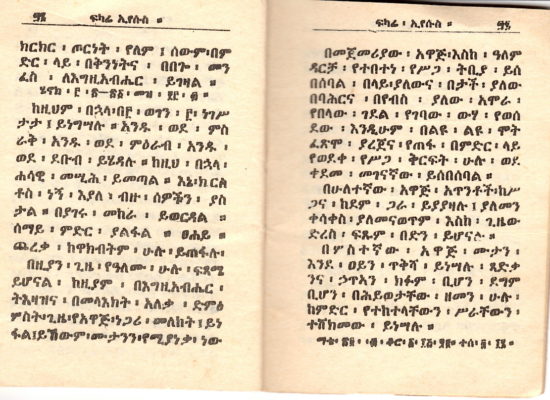 ፍካሬ ኢየሱስ ።
ክርክር ፡ ጦርነት ፡ የለም ፤ ሰውም ፡ በም
ድር ፡ ላይ ፡ በቅንንትና ፡ በበጐ ፡ መን
ፈስ ፡ ለእግዚአብሔር ፡ ይገዛል ።
ከዚህም ፡ በኋላ ፡ በ፫ ፡ ወገን ፡ ፫ ፡ ነገሥ
ታት ፤ ይነግሣሉ ። አንዱ ፡ ወደ ፡ ምስ
ራቅ ፡ አንዱ ፡ ወደ ፡ ምዕራብ ፡ አንዱ ፡
ወደ ፡ ደቡብ ፡ ይሄዳሉ ። ከዚህ ፡ በኋላ ፡
ሐሳዊ ፡ መሢሕ ፡ ይመጣል ። እኔ ፡ ክርስ
ቶስ ፡ ነኝ ፡ እያለ ፡ ብዙ ፡ ሰዎችን ፡ ያስ
ታል ። በያገሩ ፡ መከራ ፡ ይወርዳል ።
ሰማይ ፡ ምድር ፡ ያልፋል ። ፀሐይ ፡
ጨረቃ ፡ ከዋክብትም ፡ ሁሉ ፡ ይጠፋሉ፡
በዚያን ፡ ጊዜ ፡ የዓለሙ ፡ ሁሉ ፡ ፍጻሜ
ይሆናል ፡ ከዚያም ፡ በእግዚአብሔር ፡
ትእዛዝና ፡ በመላእክት ፡ አለቃ ፡ ድምፅ
፫ስት ፡ ጊዜ ፡ የአዋጅ ፡ ነጋሪ ፡ መለከት ፤ ይነ
ፋል ፤ ይኸውም ፡ ሙታንን ፡ የሚያነቃ ፡ ነው
ፍካሬ ፡ ኢየሱስ ።
በመጀመሪያው ፡ አዋጅ ፡ እስከ ፡ ዓለም
ዳርቻ ፡ የተበተነ ፡ የሥጋ ፡ ትቢያ ፡ ይሰ
በሰባል ፡ በላይ ፡ ያለውና ፡ በታች ፡ ያለው
በባሕርና ፡ በየብስ ፡ ያለው ፡ አሞራ ፡
የበላው ፡ ገደል ፡ የገባው ፡ ውሃ ፡ የወሰ
ደው ፡ እንዲሁም ፡ በልዩ ፡ ልዩ ፡ ሞት
ፈጥኖ ፡ ያረጀና ፡ የጠፋ ፡ በምድር ፡ ላይ
የወደቀ ፡ የሥጋ ፡ ቅርፍት ፡ ሁሉ ፡ ወደ
ተደመ ፡ መገናኛው ፡ ይሰበሰባል ።
በሁለተኛው ፡ አዋጅ ፡ አጥንቶች ፡ ከሥ
ጋና ፡ ከደም ፡ ጋራ ፡ ይያያዛሉ ፤ ያለመን
ቀሳቀስ ፡ ያለመናወጥም ፡ እስከ ፡ ጊዜው
ድረስ ፡ ፍጹም ፡ በድን ፡ ይሆናሉ፡
በ፫ስተኛው ፡ አዋጅ ፡ ሙታን ፡
እንደ ፡ ዐይን ፡ ጥቅሻ ፡ ይነሣሉ ፡ ጻድቃ
ንና ፡ ኃጥአን ፡ ክፉም ፡ ቢሆን ፡ ደግም
ቢሆን ፡ በሕይወታቸው ፡ ዘመን ፡ ሁሉ ፡
ከምድር ፡ የተከተላቸውን ፡ ሥራቸውን ፡
ተሸክመው ፡ ይነሣሉ ።